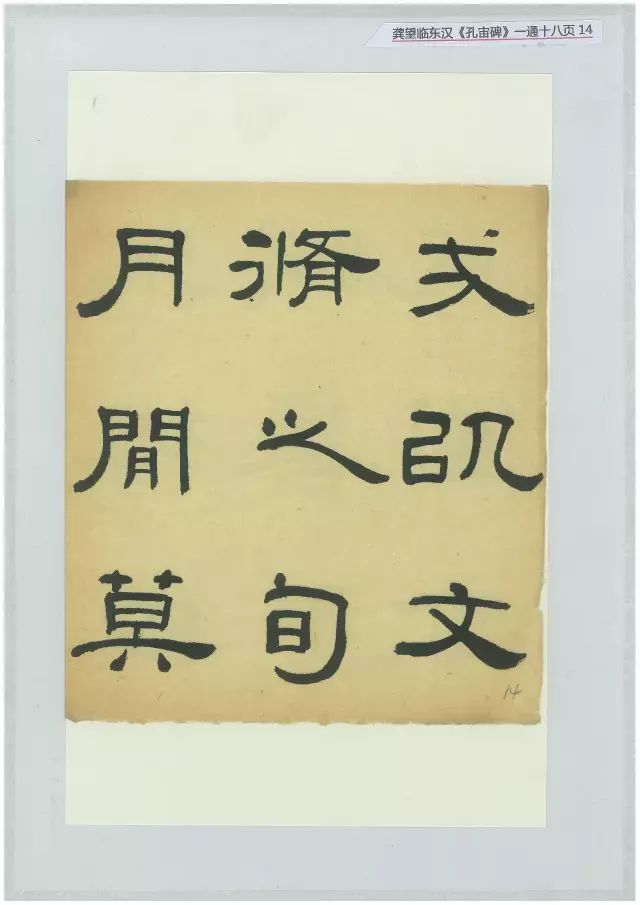 龚望临东汉《孔宙碑》一通十八页 14
戎以文
脩之旬
月閒莫
14